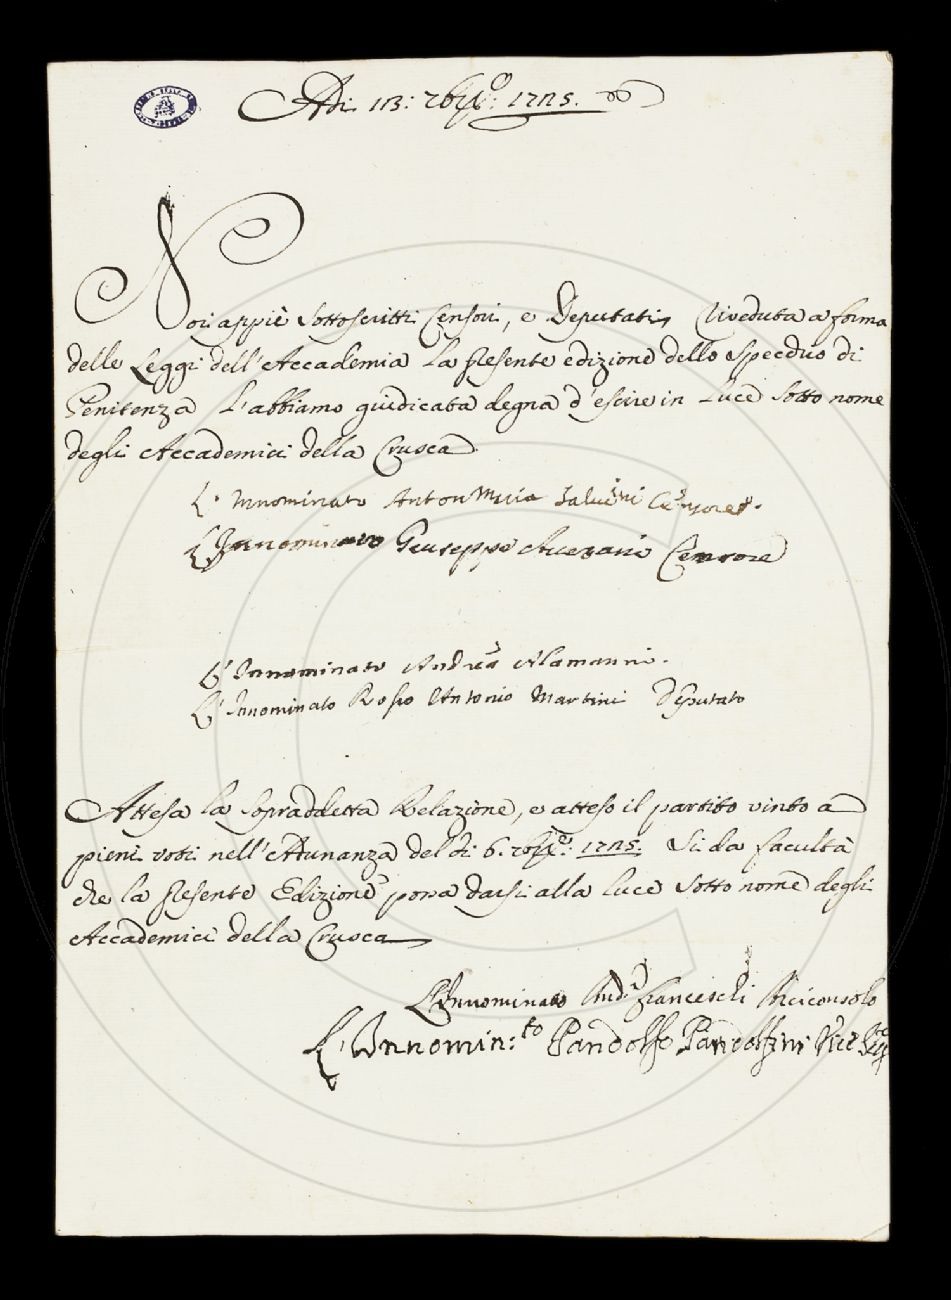 Adì 13: 7bre: 1725.
Noi appiè Sottoscritti Censori, e Deputati Riveduta a forma
delle Leggi dell'Accademia La presente edizione dello Specchio di
Penitenza L'abbiamo giudicata degna d'escire in Luce Sotto nome
degli Accademici della Crusca
L'Innominato Anton Maria Salvini Censore.
L'Innominato Giuseppe Averani Censore
L'Innominato Andrea Alamanni.
L'Innominato Rosso Antonio Martini Deputato
Attesa la Sopraddetta Relazione, e atteso il partito vinto a
pieni voti nell'Adunanza del dì 6. 7bre: 1725. Si da facultà
che la presente Edizione possa darsi alla luce Sotto nome degli
Accademici della Crusca
L'Innominato And.a Franceschi Viciconsolo
L'Innomin:to Pandolfo Pandolfini Vice